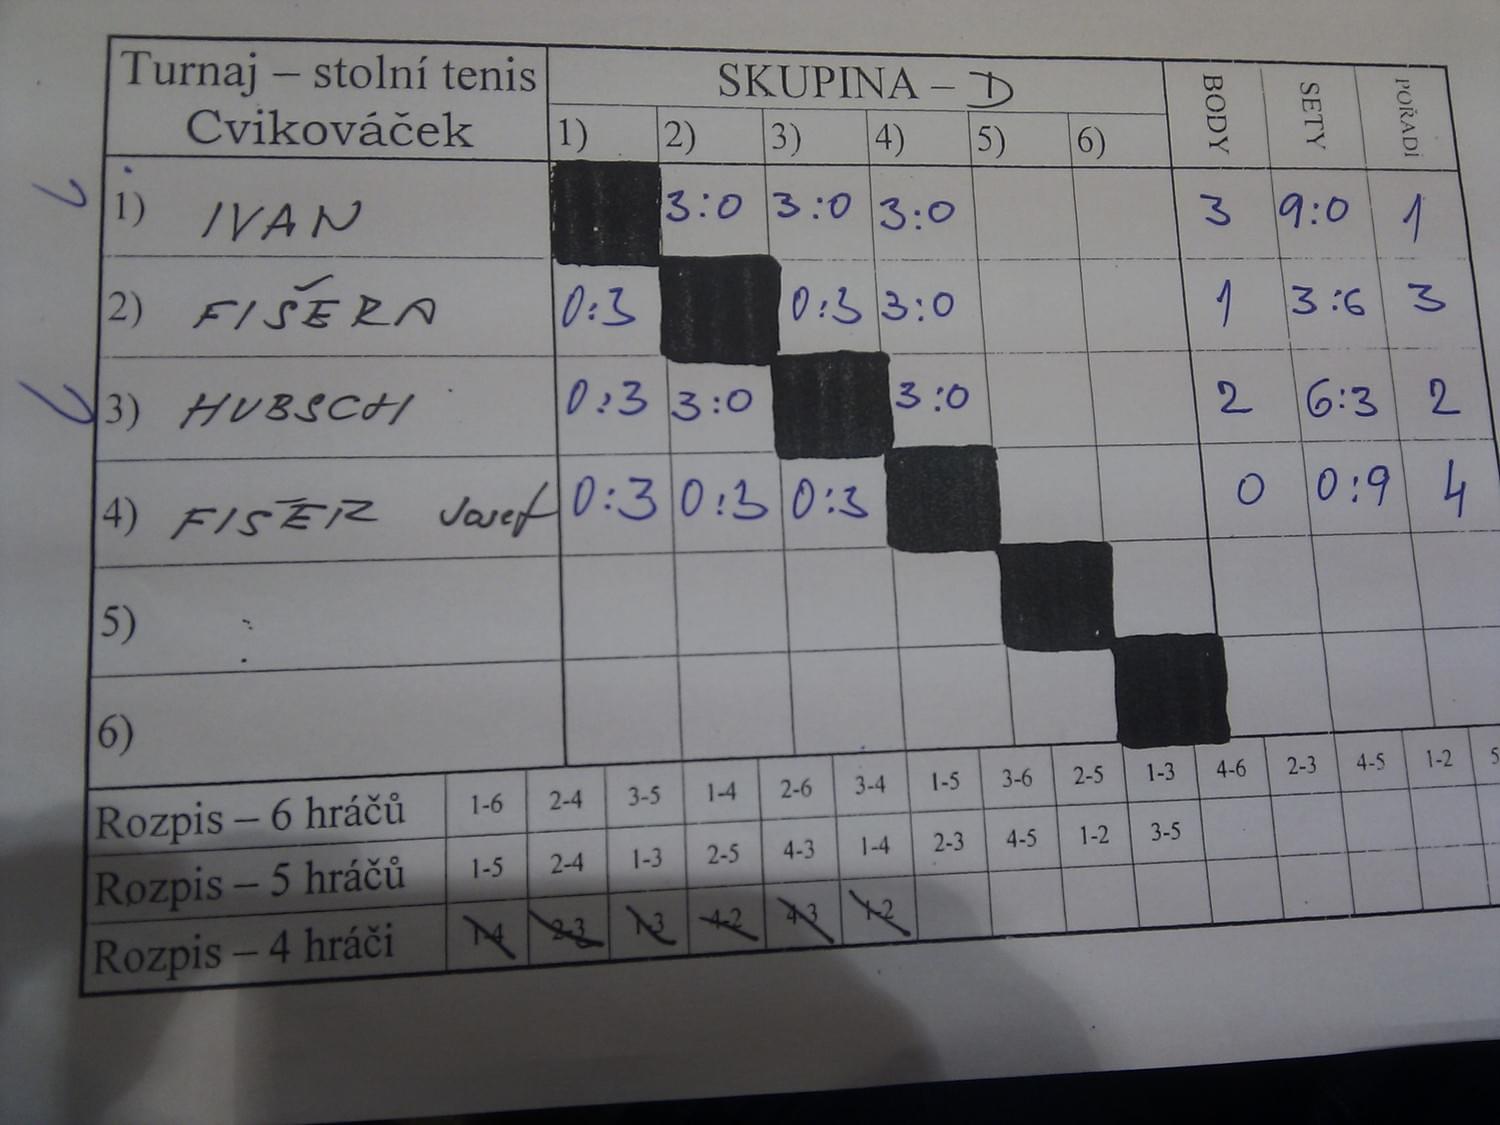 Turnaj – stolní tenis
Cvikováček
SKUPINA – D
BODY SETY POŘADÍ
1) 2) 3) 4) 5) 6)
1) IVAN 3:0 3:0 3:0 3 9:0 1
2) FIŠERA 0:3 0:3 3:0 1 3:6 3
3) HUBSCH 0:3 3:0 3:0 2 6:3 2
4) FIŠER Josef 0:3 0:3 0:3 0 0:9 4
5)
6)
Rozpis – 6 hráčů 1-6 2-4 3-5 1-4 2-6 3-4 1-5 3-6 2-5 1-3 4-6 2-3 4-5 1-2 5
Rozpis – 5 hráčů 1-5 2-4 1-3 2-5 4-3 1-4 2-3 4-5 1-2 3-5
Rozpis – 4 hráči 1-4 2-3 1-3 4-2 4-3 1-2